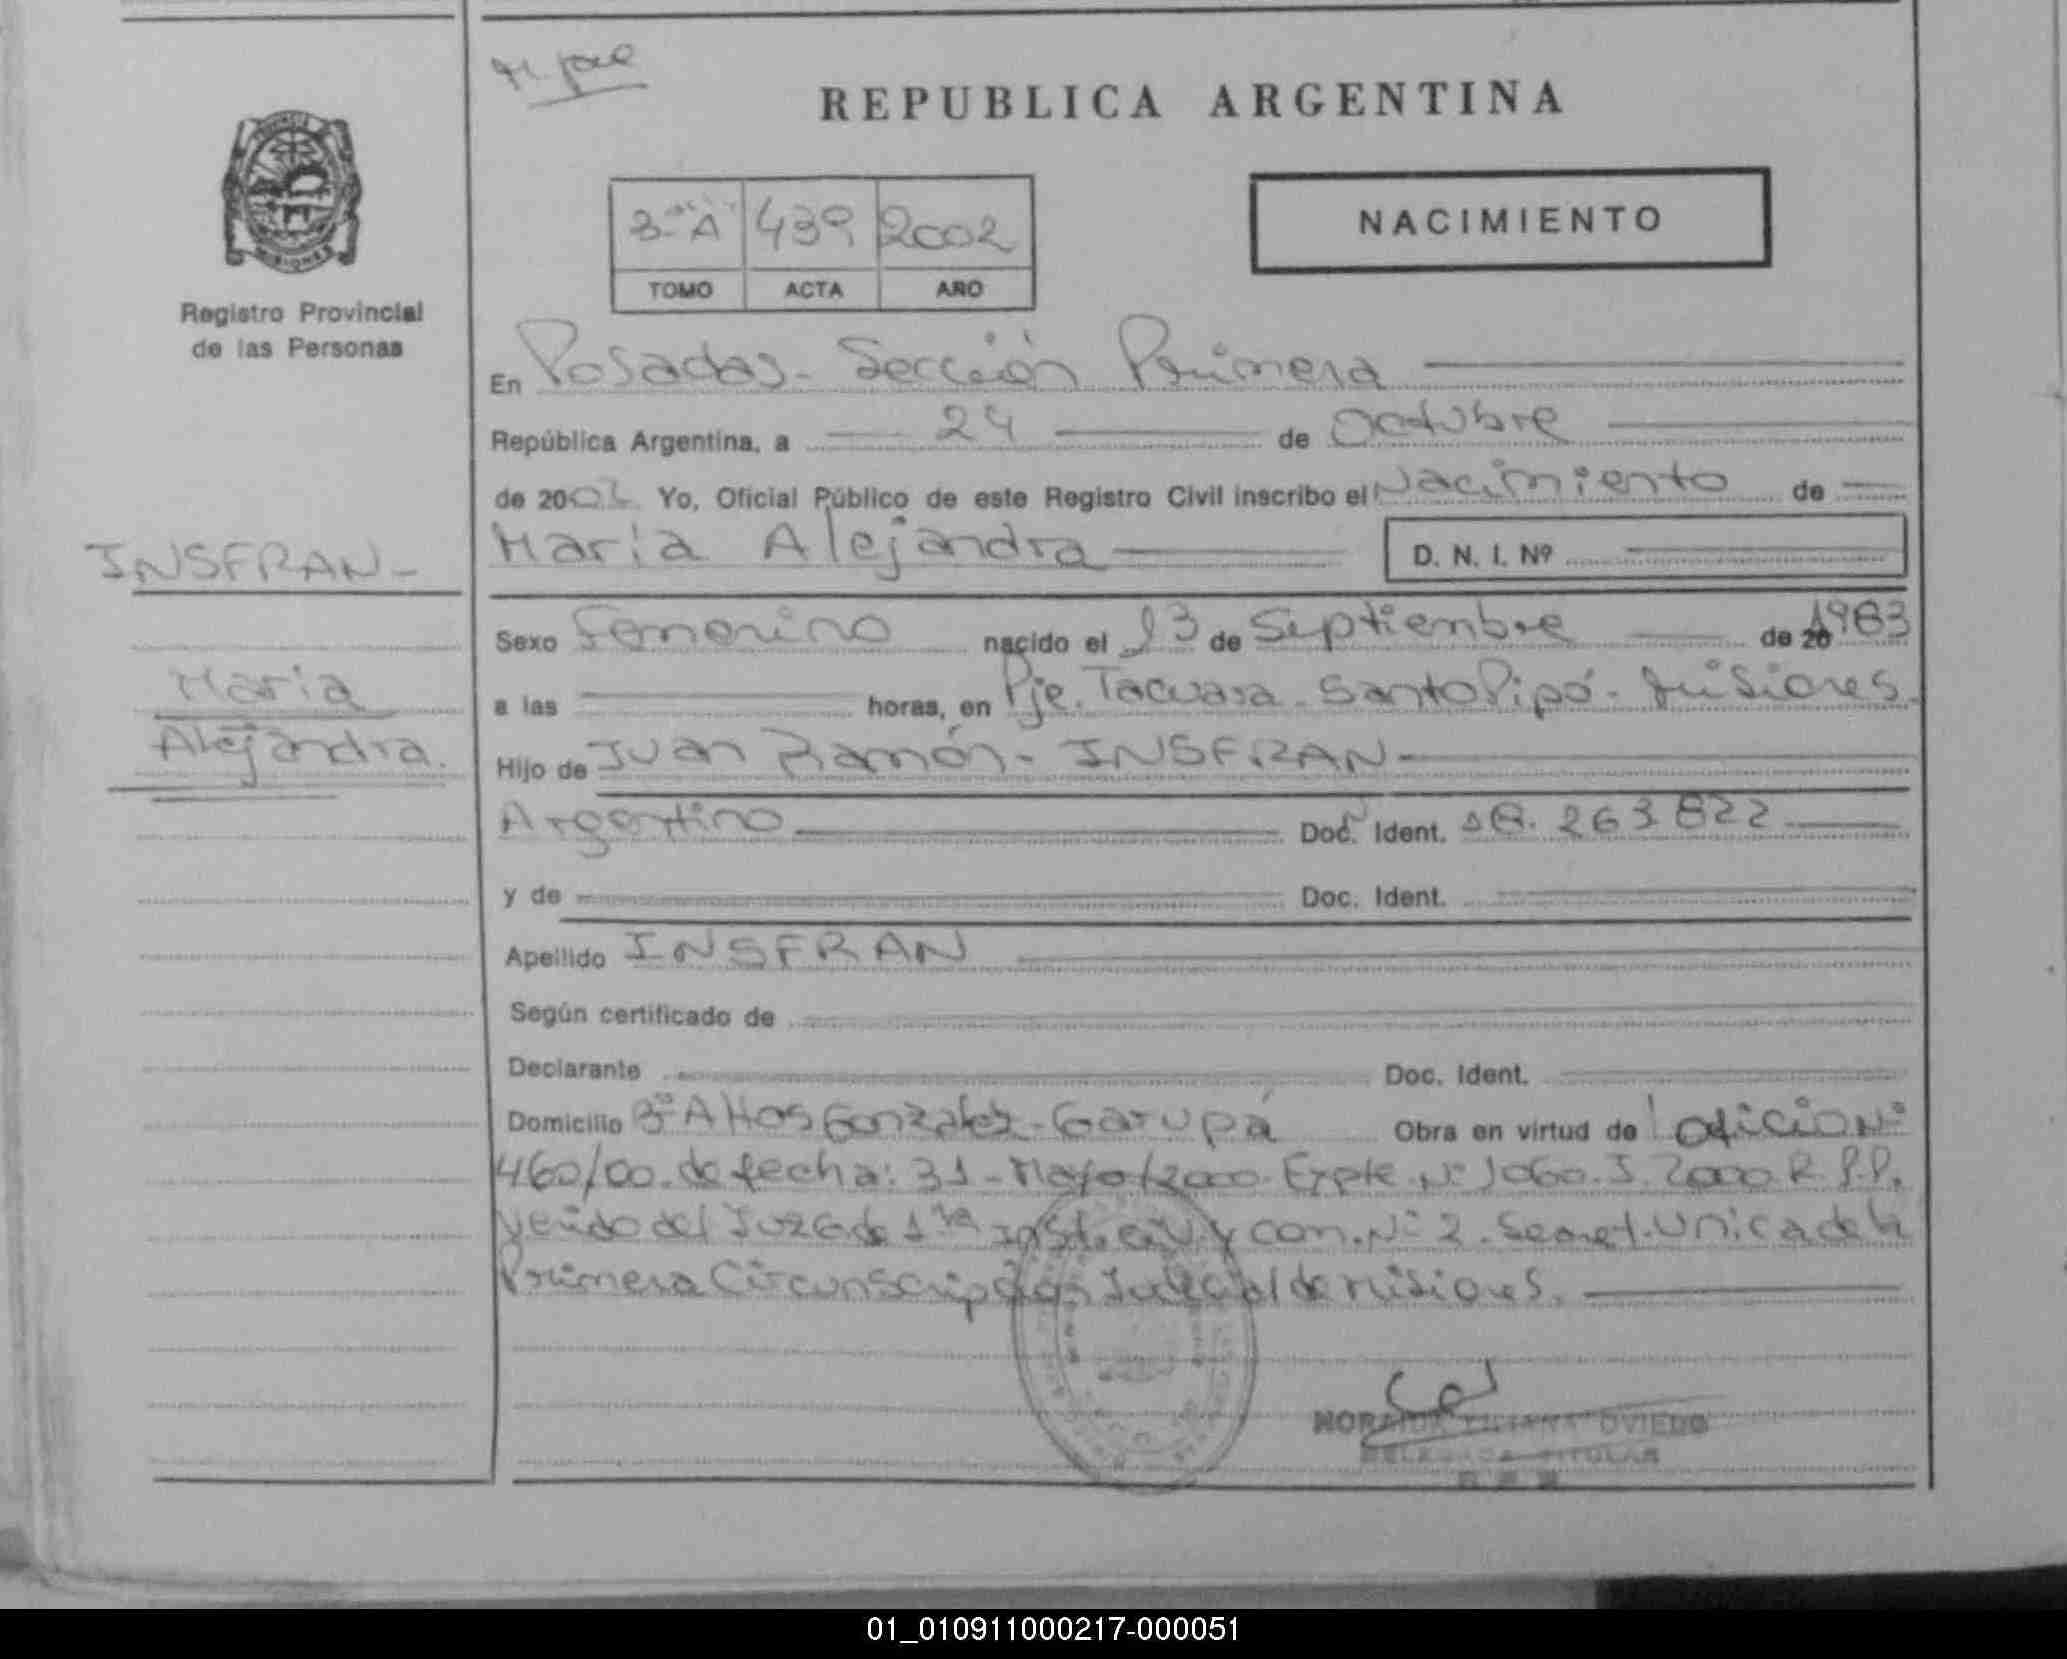 REPUBLICA ARGENTINA
3º "A" 439 2002
TOMO ACTA AÑO
NACIMIENTO
Registro Provincial
de las Personas
En Posadas - Sección Primera
República Argentina, a 24 de Octubre
de 2002 Yo, Oficial Público de este Registro Civil inscribo el Nacimiento de
INSFRAN -
María Alejandra
D. N. I. Nº
Sexo Femenino nacido el 13 de Septiembre de 20 1983
María
Alejandra.
a las horas, en Pje. Tacuara - Santo Pipó - Misiones.
Hijo de Juan Ramón - INSFRAN -
Argentino Doc. Ident. Nº 263822
y de Doc. Ident.
Apellido INSFRAN
Según certificado de
Declarante Doc. Ident.
Domicilio Bº Altos Gonzalez - Garupá Obra en virtud de oficio Nº
460/00. de fecha: 31 - Mayo/2000. Expte. Nº 1060. I. 2000 R.P.P.
venido del Juzg de 1ra Inst. Civ. y Com. Nº 2. Secret. Unica de la
Primera Circunscripción Judicial de Misiones.
LILIANA OVIEDO
DELEGADA TITULAR
01_010911000217-000051